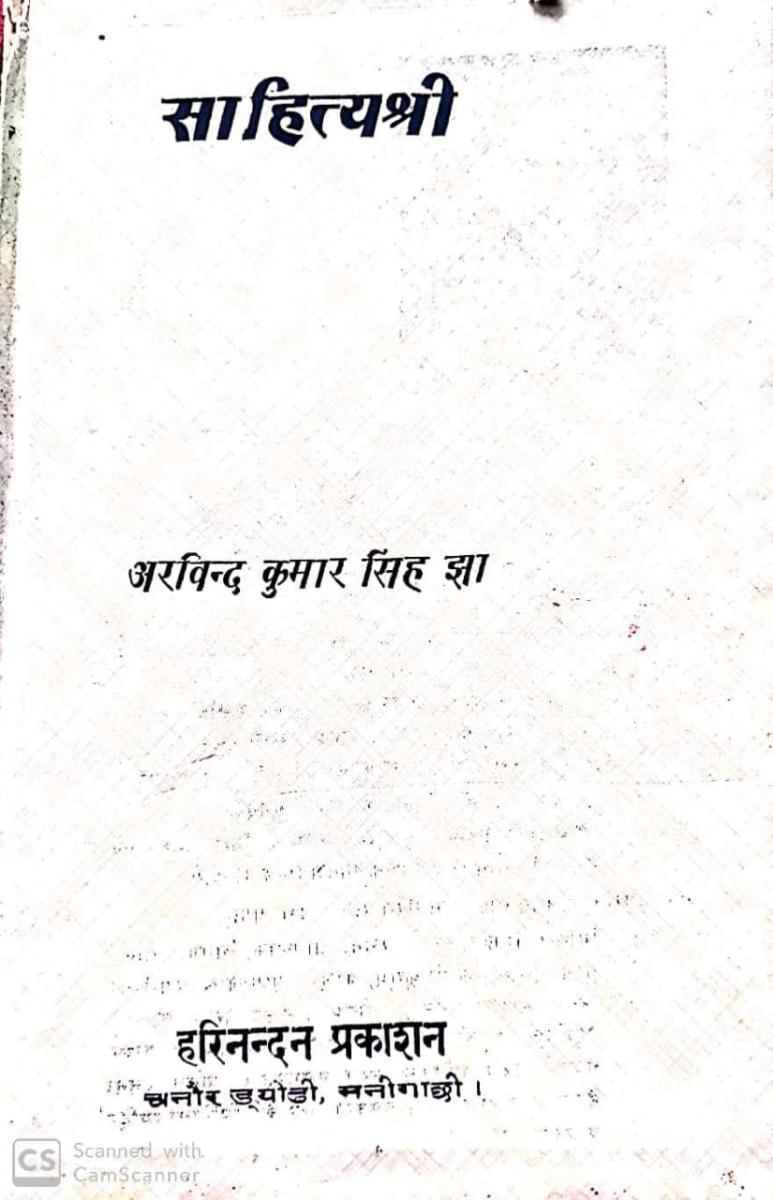 साहित्यश्री
अरविन्द कुमार सिंह झा
हरिनन्दन प्रकाशन
चनौर ड्योढ़ी, मनीगाछी ।
CS Scanned with
CamScanner